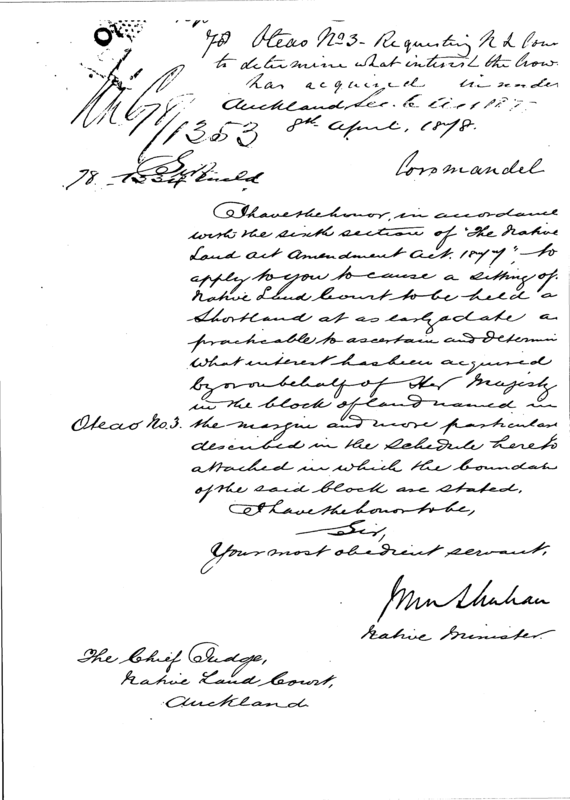 Oteao No3 - Requesting N L Cour
to determine what interest the Crow
has acquired in under
Auckland Sec. 6
8th April, 1878.
1353
Coromandel
78
Sir
I have the honor, in accordance
with the sixth section of "The Native
Land Act Amendment Act. 1877", to
apply to you to cause a sitting of
Native Land Court to be held a
Shortland at as early a date as
practicable to ascertain and determin
what interest has been acquired
by or on behalf of Her Majesty
in the block of land named in
Oteao No.3. the margin and more particular
described in the Schedule hereto
attached in which the boundar
of the said block are stated.
I have the honor to be,
Sir,
Your most obedient servant,
Native Minister.
The Chief Judge,
Native Land Court,
Auckland